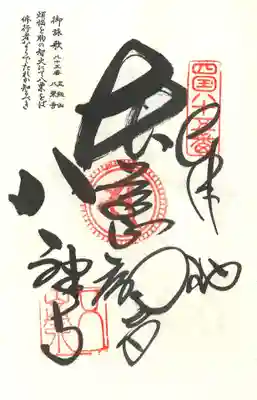 四国八十五番
奉納
本尊聖観音
八栗寺
御詠歌 八十五番 五剣山 八栗寺
煩悩を胸の智火にて八栗をば
修行者ならでたれか知るべき